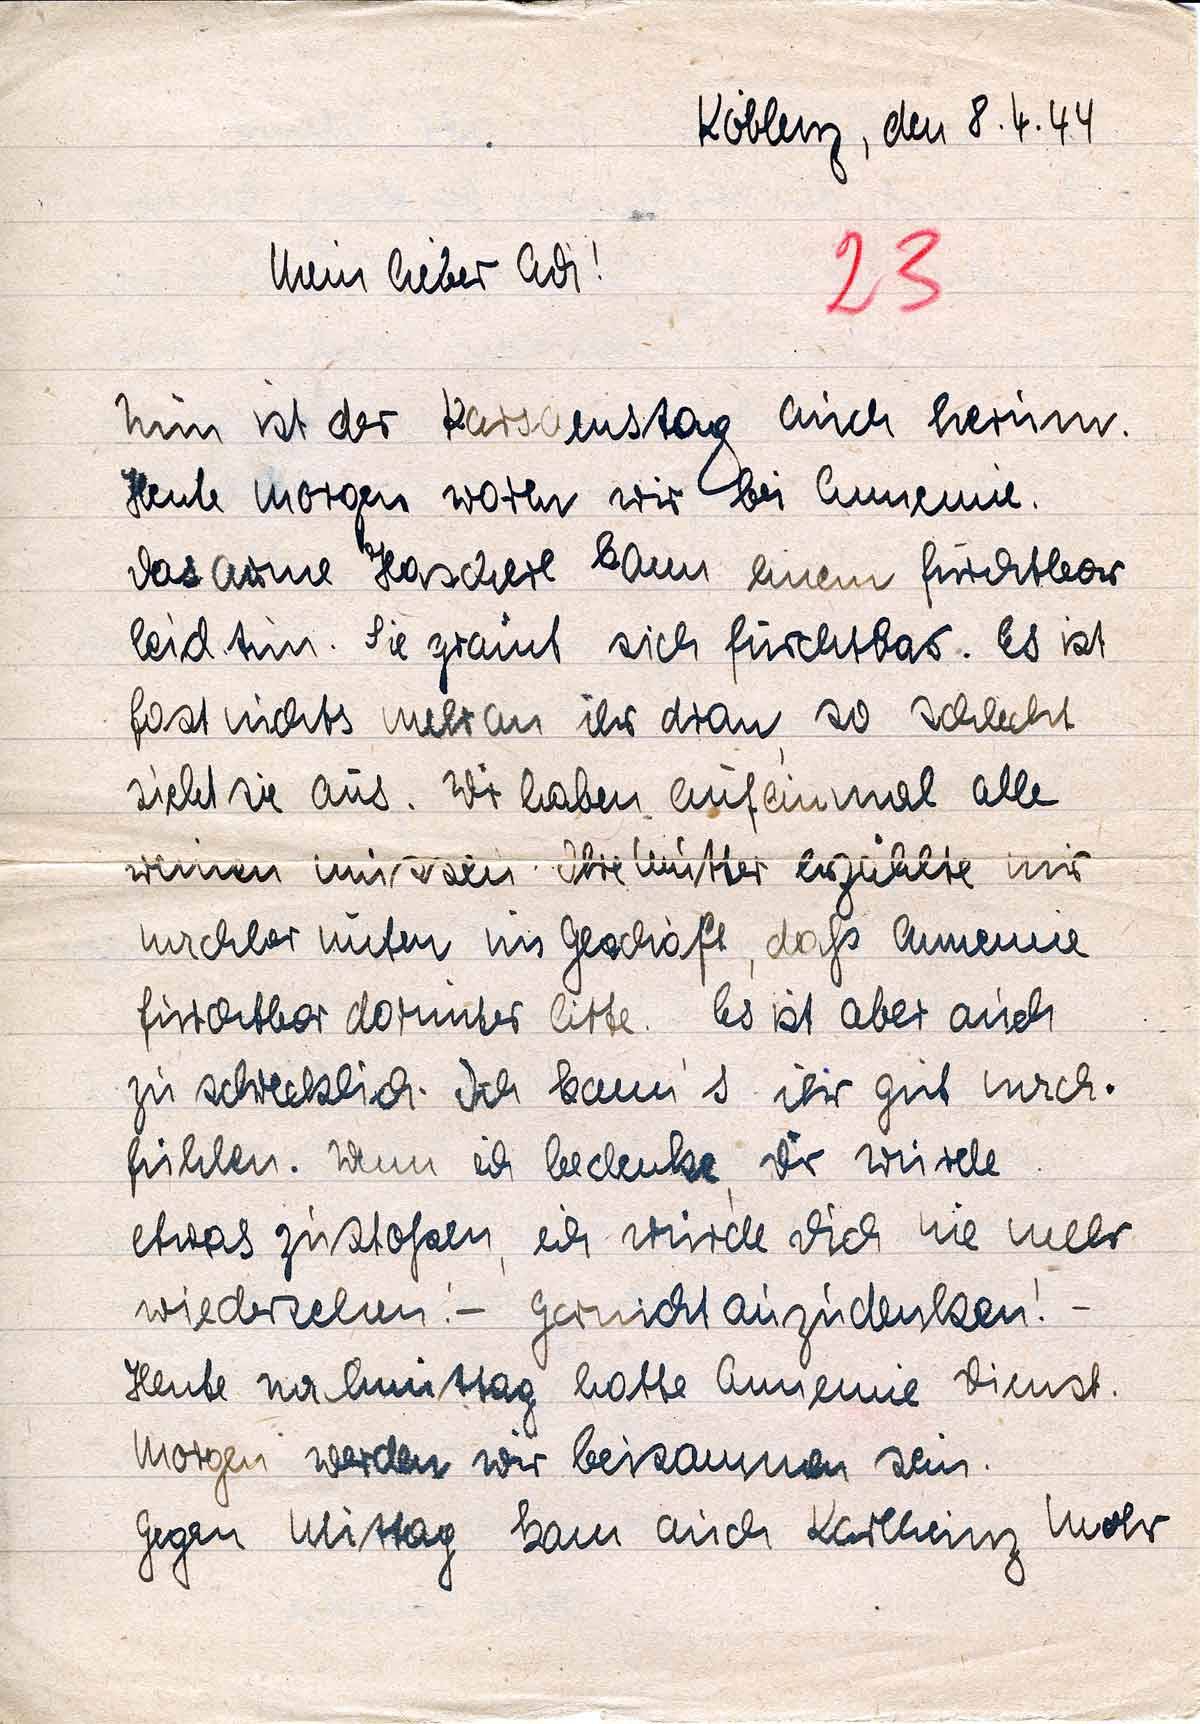 Koblenz, den 8.4.44
Mein lieber Adi!
23
Nun ist der Karsamstag auch herum.
Heute Morgen waren wir bei Annemie.
Das arme Hascherl kann einem furchtbar
leid tun. Sie grämt sich furchtbar. Es ist
fast nichts mehr an ihr dran, so schlecht
sieht sie aus. Wir haben auf einmal alle
weinen müssen. Ihre Mutter erzählte mir
nachher unten im Geschäft, daß Annemie
furchtbar darunter litte. Es ist aber auch
zu schrecklich. Ich kann's ihr gut nach-
fühlen. Wenn ich bedenke, Dir würde
etwas zustoßen, ich würde Dich nie mehr
wiedersehen! – Garnicht auzudenken! –
Heute nachmittag hatte Annemie Dienst.
Morgen werden wir beisammen sein.
Gegen Mittag kam auch Karlheinz Mohr